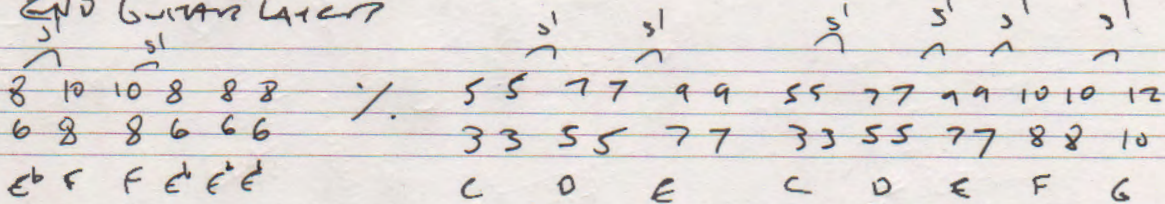 END GUITAR LAYER
sl sl sl sl sl sl sl sl
8 10 10 8 8 8 ٪ 5 5 7 7 9 9 5 5 7 7 9 9 10 10 12
6 8 8 6 6 6 3 3 5 5 7 7 3 3 5 5 7 7 8 8 10
E♭ F F E♭ E♭ E♭ C D E C D E F G